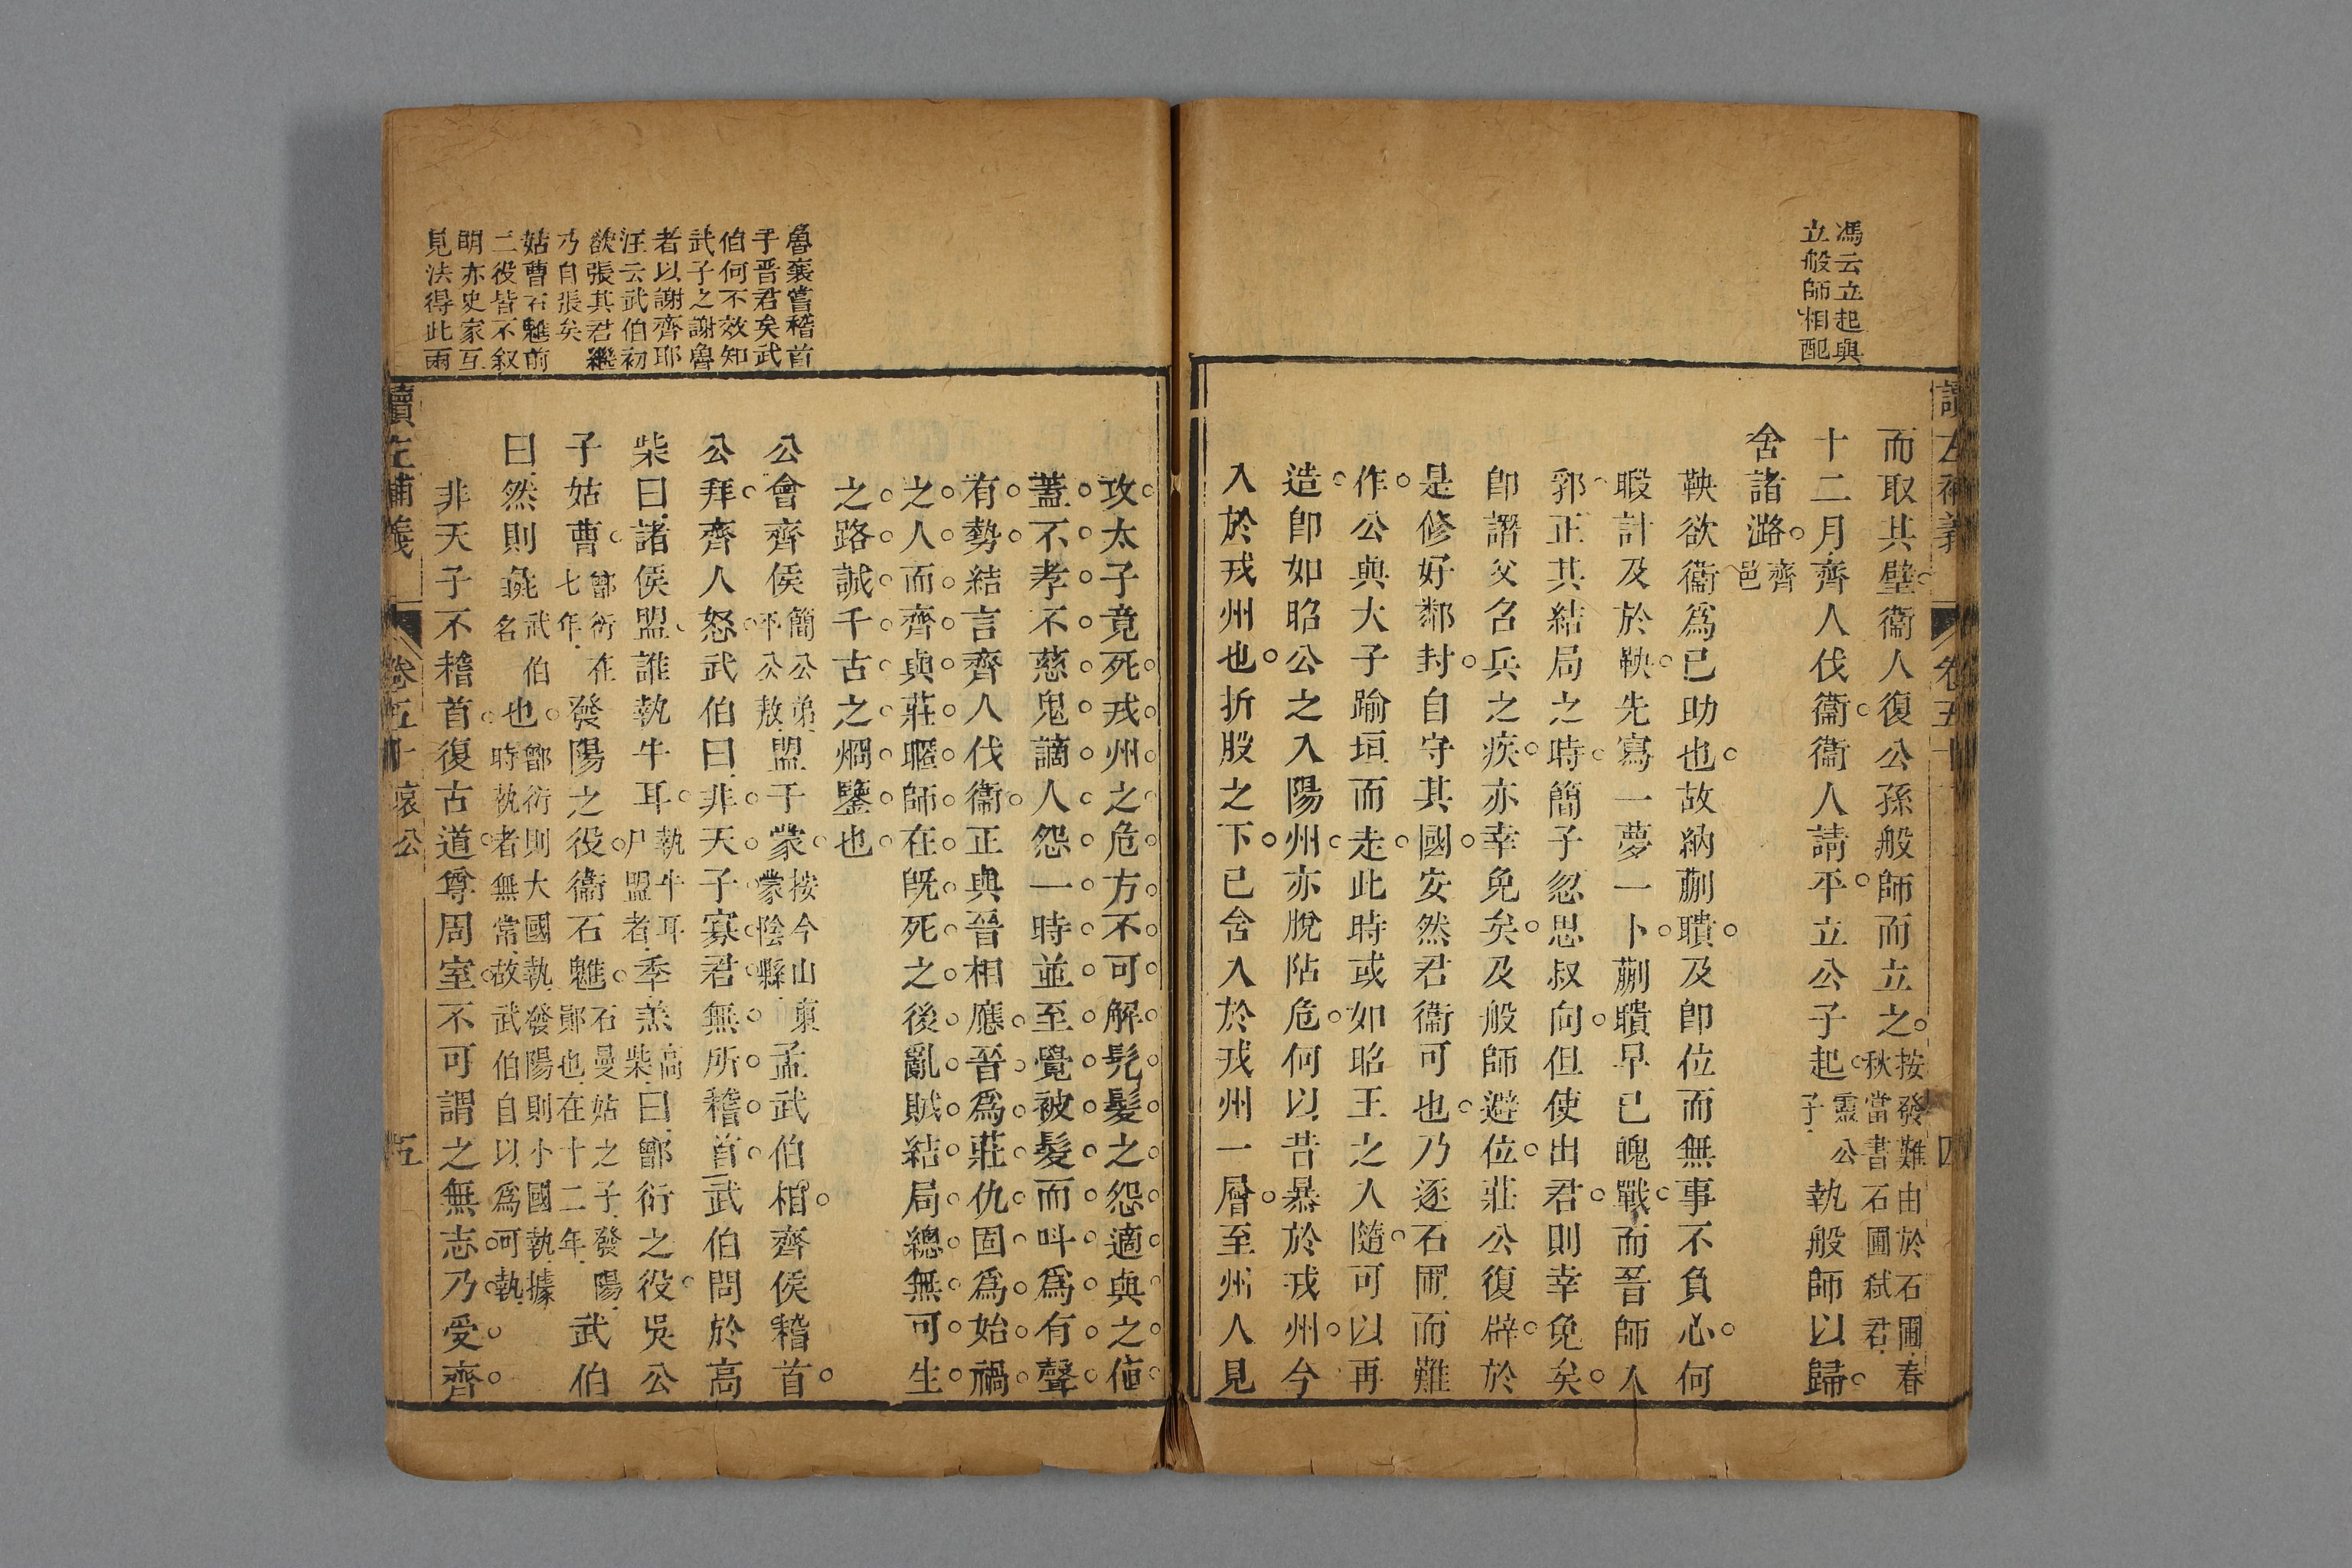 馮云立起與
立般師相配
而取其璧衞人復公孫般師而立之按發難由於石圃春秋當書石圃弑君
十二月齊人伐衞衞人請平立公子起靈公子執般師以歸
舍諸潞齊邑
鞅欲衞爲已助也故納蒯聵及卽位而無事不負心何
暇計及於鞅先寫一夢一卜蒯聵早已魄戰而晉師入
郛正其結局之時簡子忽思叔向但使出君則幸免矣
卽謂父召兵之疾亦幸免矣及般師避位莊公復辟於
是修好鄰封自守其國安然君衞可也乃逐石圃而難
作公與大子踰垣而走此時或如昭王之人隨可以再
造卽如昭公之入陽州亦脫阽危何以昔暴於戎州今
入於戎州也折股之下已舍入於戎州一層至州人見
讀左補義
卷五十
四
魯襄嘗稽首
于晉君矣武
伯何不效知
武子之謝魯
者以謝齊耶
汪云武伯初
欲張其君繼
乃自張矣
姑曹石魋前
二役皆不叙
明亦史家互
見法得此雨
攻太子竟死戎州之危方不可解髡髮之怨適與之値
蓋不孝不慈鬼謫人怨一時並至覺被髮而呌爲有聲
有勢結言齊人伐衞正與晉相應晉爲莊仇固爲始禍
之人而齊與莊暱師在旣死之後亂賊結局總無可生
之路誠千古之烱鑒也
公會齊侯簡公弟平公敖盟于蒙按今山東蒙陰縣孟武伯相齊侯稽首
公拜齊人怒武伯曰非天子寡君無所稽首武伯問於高
柴曰諸侯盟誰執牛耳執牛耳尸盟者季羔高柴曰鄫衍之役吳公
子姑曹鄫衍在七年發陽之役衞石魋石曼姑之子發陽鄖也在十二年武伯
曰然則彘武伯名也鄫衍則大國執發陽則小國執據時執者無常故武伯自以爲可執
非天子不稽首復古道尊周室不可謂之無志乃受齊
讀左補義
卷五十
哀公
五